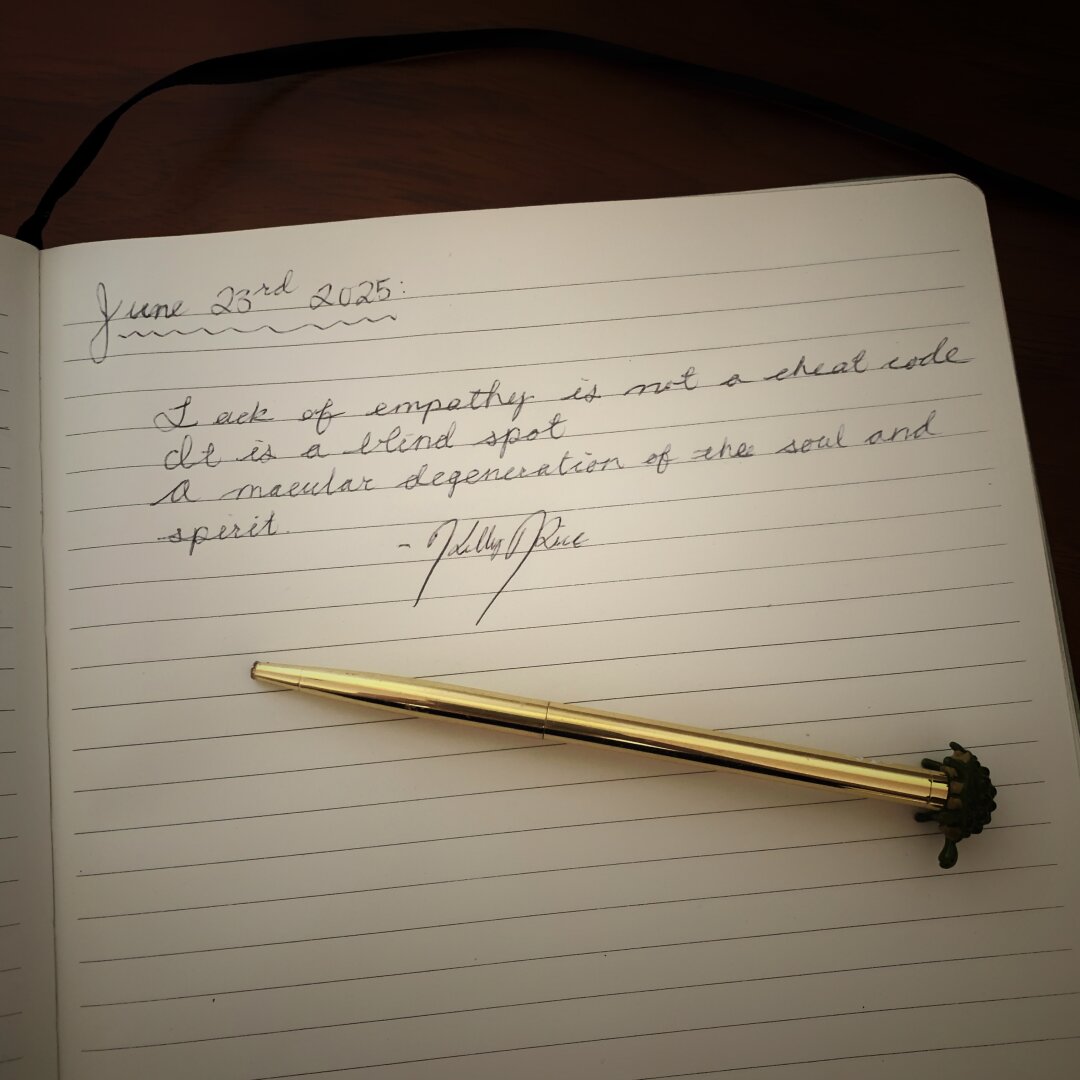 June 23rd 2025:
Lack of empathy is not a cheat code
It is a blind spot
A macular degeneration of the soul and
spirit.
- Kelly Rice